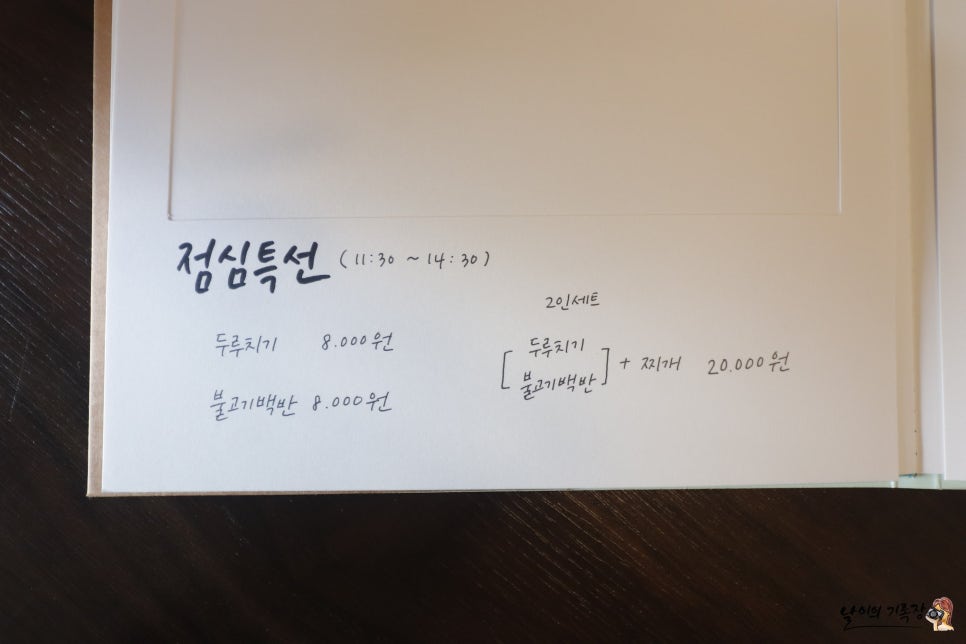 점심특선 (11:30 ~ 14:30)
두루치기 8.000원
불고기백반 8.000원
2인세트
[두루치기 불고기백반] + 찌개 20.000원
날이의 기록장